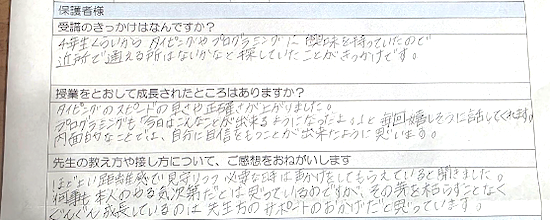 保護者様
受講のきっかけはなんですか?
4年生くらいから タイピングやプログラミングに 興味を持っていたので
近所で通える所はないかなと探していたことがきっかけです。
授業をとおして成長されたところはありますか?
タイピングのスピードの早さや正確さが上がりました。
プログラミングも「今日はこんなことが出来るようになったよ。」と毎回嬉しそうに話してくれます。
内面的なことでは、自分に自信をもつことが出来たように思います。
先生の教え方や接し方について、ご感想をおねがいします
ほどよい距離感で見守りつつ 必要な時は声かけをしてもらえていると聞きました。
何事も本人のやる気次第だとは思っているのですが、その芽を枯らすことなく
ぐんぐん成長しているのは先生方のサポートのおかげだと思っています。